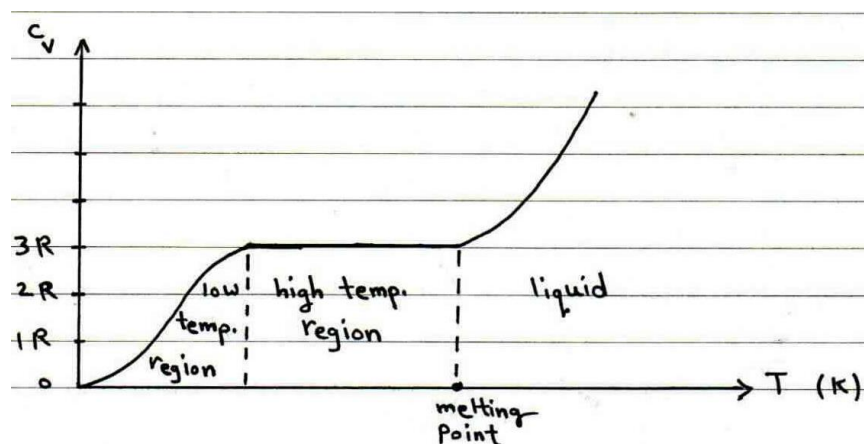 Cv
3R
2R
1R
0
low
temp.
region
high temp.
region
liquid
melting
point
T (K)